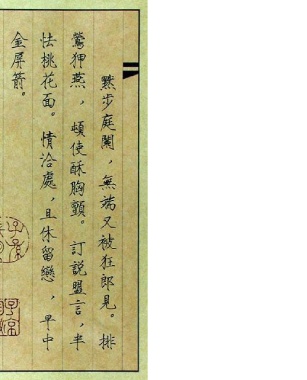 緩步庭闌,無端又被狂郎見。排
鶯狎燕,頓使酥胸顫。訂說盟言,半
怯桃花面。情洽處,且休留戀,早中
金屏箭。